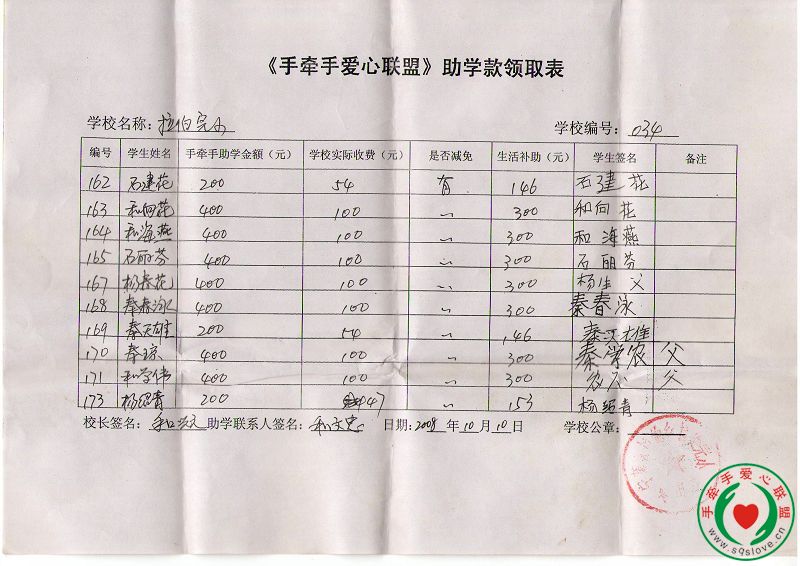 《手牵手爱心联盟》助学款领取表
学校名称：拉伯完小 学校编号：034
编号 学生姓名 手牵手助学金额（元） 学校实际收费（元） 是否减免 生活补助（元） 学生签名 备注
162 石建花 200 54 有 146 石建花
163 和向花 400 100 〃 300 和向花
164 和海燕 400 100 〃 300 和海燕
165 石丽芬 400 100 〃 300 石丽芬
167 杨春花 400 100 〃 300 杨生 父
168 秦春泳 400 100 〃 300 秦春泳
169 秦汉雄 200 54 〃 146 秦汉雄
170 秦琼 400 100 〃 300 秦学农 父
171 和学伟 400 100 〃 300 父
173 杨绍青 200 47 〃 153 杨绍青
校长签名： 助学联系人签名：和文忠 日期：2008 年 10 月 10 日 学校公章：
手牵手爱心联盟
www.sqslove.cn